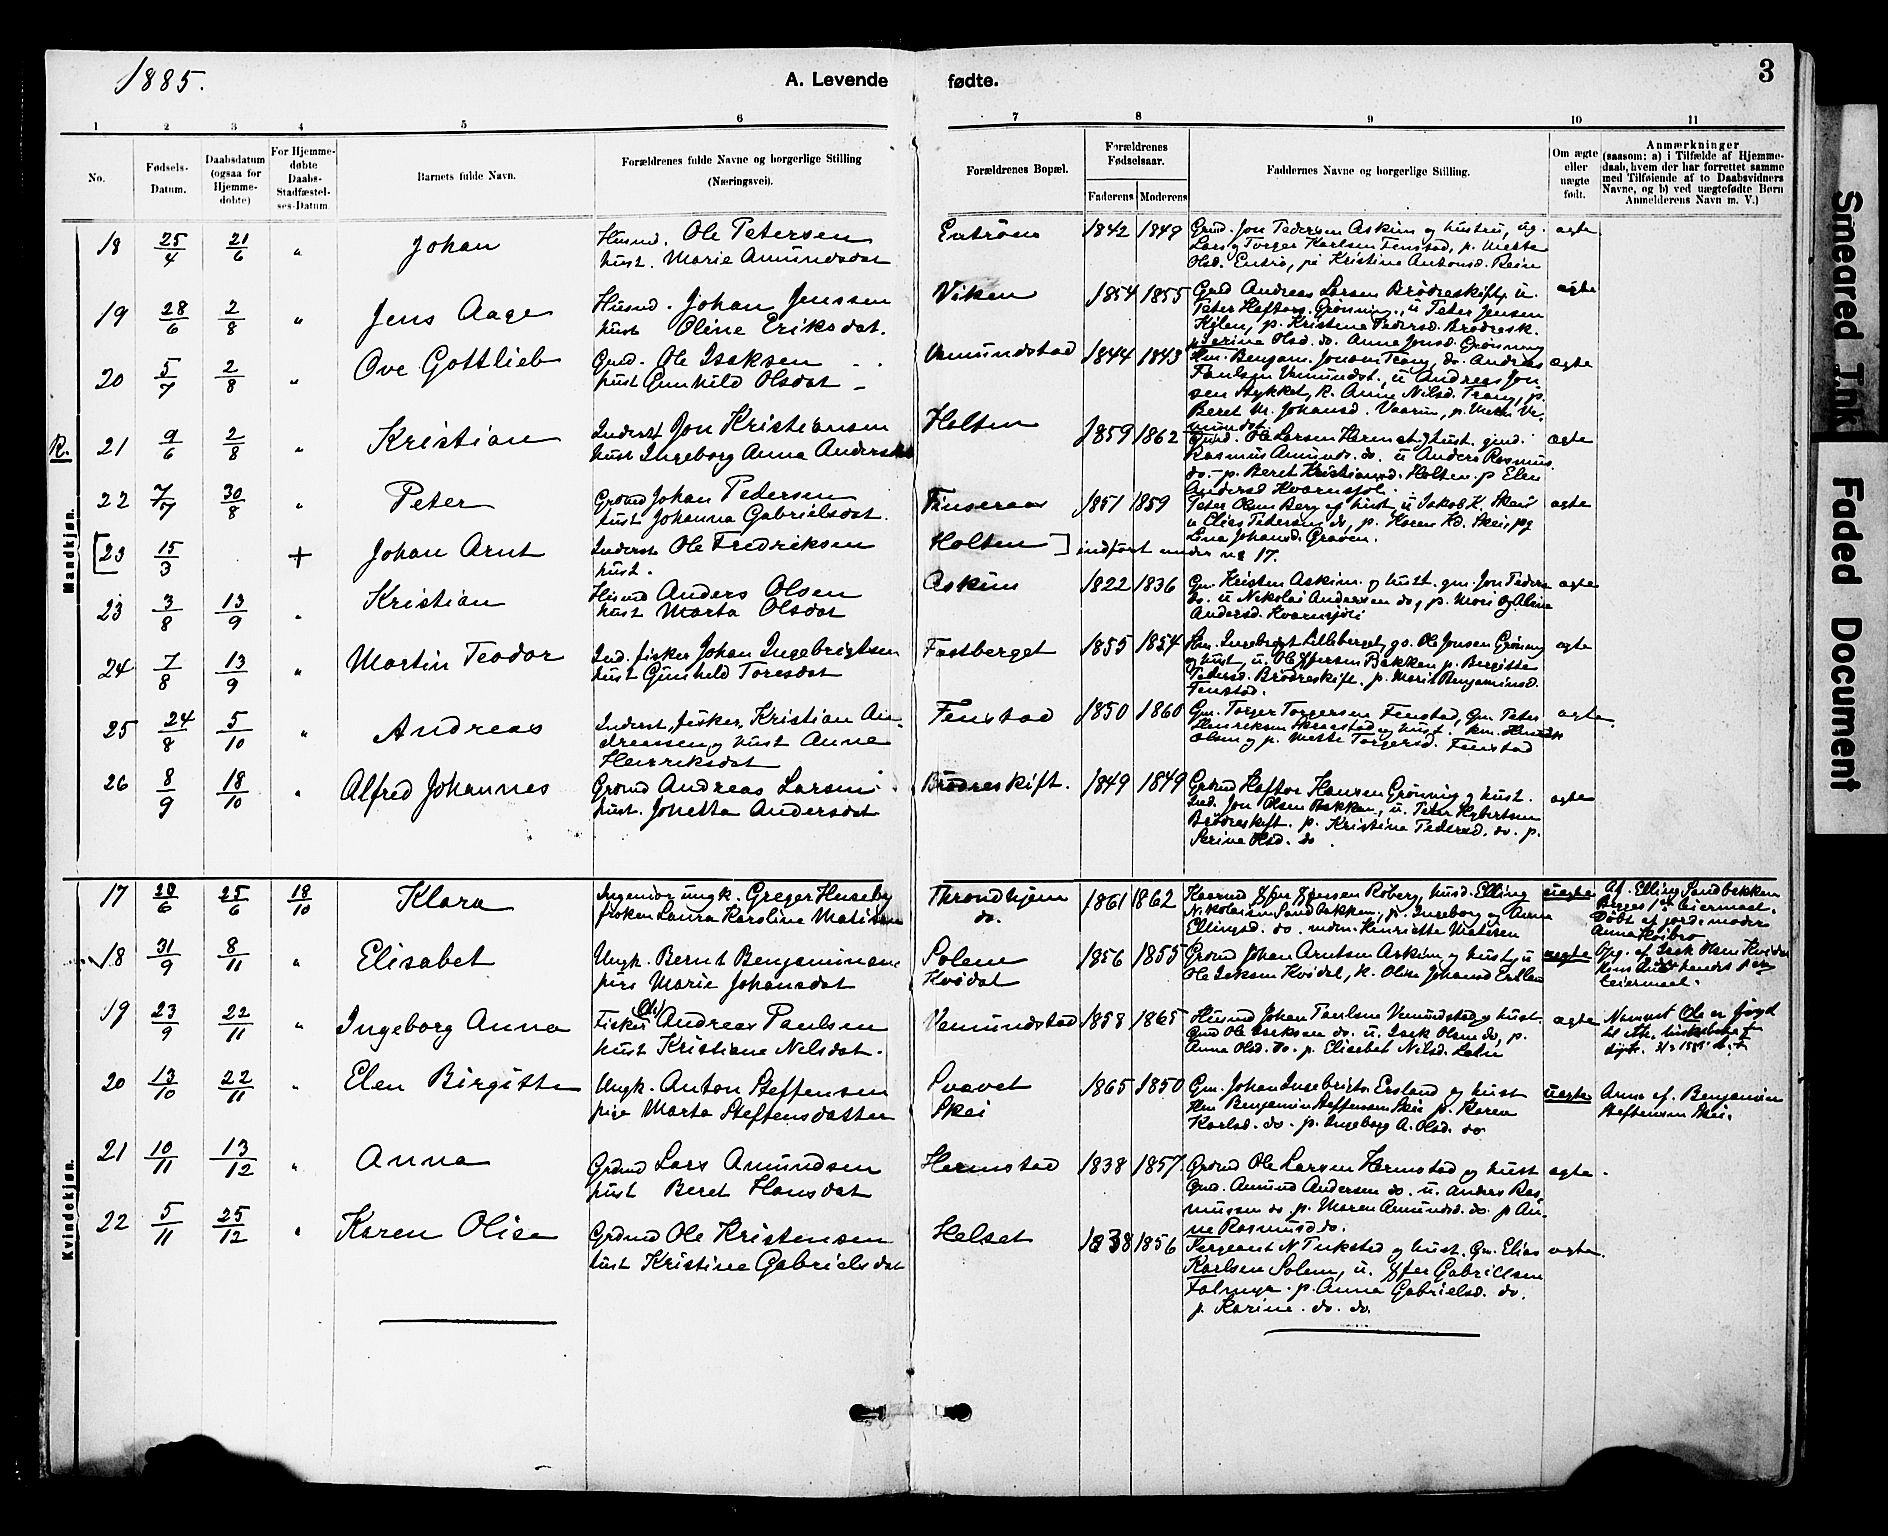 1885.
A. Levende fødte.
3
1 2 3 4 5 6 7 8 9 10 11
No.
Fødsels-
Datum.
Daabsdatum
(ogsaa for
Hjemme-
døbte)
For Hjemme-
døbte
Daabs-
Stadfæstel-
ses-Datum.
Barnets fulde Navn.
Forældrenes fulde Navne og borgerlige Stilling
(Næringsvei).
Forældrenes Bopæl.
Forældrenes
Fødselsaar.
Faderens Moderens
Faddernes Navne og borgerlige Stilling.
Om ægte
eller
uægte
født.
Anmærkninger
(saasom: a) i Tilfælde af Hjemme-
daab, hvem der har forrettet samme
med Tilføiende af to Daabsvidners
Navne, og b) ved uægtefødte Børn
Anmelderens Navn m. V.)
Mandkjøn.
18 25/4 21/6 " Johan
Husmd. Ole Petersen
hust. Marie Amundsdat
Entrøen 1842 1849
Gmd. Jon Pedersen Askim og hustru, ug.
Lars og Torger Karlsen Fenstad, p. Mette
Olsd. Entrø, pi Kristine Antonsd. Beien
ægte
19 28/6 2/8 " Jens Aage
Husmd. Johan Jenssen
hust Oline Eriksdat.
Viken 1854 1855
Gmd Andreas Larsen Brødreskift, u.
Peter Haftors. Grønning, u Peter Jensen
Kjølen, p. Kristine Pedersd. Brødresk.
p Serine Olsd. do. Anne Jonsd. Grønning
ægte
20 5/7 2/8 " Ove Gottlieb
Gmd. Ole Isaksen
hust Gunhild Olsdat
Vemundstad 1844 1843
Hm. Benjam. Jonsen Trang, do. Andreas
Paulsen Vemundst., u Andreas Jon
sen Stykket, K. Anne Nilsd. Trang, p.
Beret M. Johansd. Vaarum, p. Mette Ve-
mundst.
ægte
R. 21 9/6 2/8 " Kristian
Inderst Jon Kristiansen
hust Ingeborg Anna Andersdat
Holten 1859 1862
Gmd. Ole Larsen Hermst. og hust. gmd.
Rasmus Amunds. do. u Anders Rasmus.
do. - p. Beret Kristiansd. Holten p Elen
Andersd Kvernsjøli.
ægte
22 7/7 30/8 " Peter
Grdmd Johan Pedersen
hust Johanna Gabrielsdat.
Finseraas 1851 1859
Peter Olsen Berg og hust, u Jakob K. Skei
u Elias Petersen do, p. Karen Kd. Skei, pg
Lina Johansd. Graven.
ægte
[23 15/3 + Johan Arnt
Inderst Ole Fredriksen
hust.
Holten ] indført under no 17.
23 3/8 13/9 " Kristian
Husmd Anders Olsen
hust Marta Olsdat
Askim 1822 1836
Gm. Kristen Askim og hust. gm. Jon Peders
do. u Nikolai Andersen do, p. Mari og Aline
Andersd. Kvernsjøli
ægte
24 7/8 13/9 " Martin Teodor
Ind. fisker Johan Ingebrigtsen
hust Gunhild Toresdat
Fostberget 1855 1854
Hm. Ingebrigt Lilleberget, gs. Ole Jonsen Grønning
og hust, u. Ole Effersen Bakken p. Bergitte
Pedersd. Brødreskift. p. Marit Benjaminsd.
Fenstad.
ægte
25 24/8 5/10 " Andreas
Inderst, fisker, Kristian An-
dreassen og hust Anne
Henriksdat
Fenstad 1850 1860
Gm. Torger Torgersen Fenstad, Gm. Peter
Henriksen og hust.
Olsen og p. Mette Torgersd. Fenstad
ægte.
26 8/9 18/10 " Alfred Johannes
Grdmd Andreas Larsen
hust. Jonetta Andersdat
Brødreskift. 1849 1849
Grdmd Haftor Hansen Grønning og hust.
Ind. Jon Olsen Bakken, u. Peter Hybertsen
Brødreskift. p. Kristine Pedersd. do. p.
Serine Olsd. do.
ægte
Kvindekjøn.
17 20/6 25/6 18/10 Klara
Ingeniør ungk. Greger Huseby
frøken Laura Karoline Matisen
Throndhjem
do.
1861 1862
Elling
Nikolaisen Sandbakken, p. Ingeborg og Anna
Ellingsd. do. mdm. Henriette Matisen
uægte
Af. Elling Sandbakken
Begges 1ste leiermaal.
Døbt af jordemoder
Anna
18 31/9 8/11 " Elisabet
Ungk. Bernt Benjaminsen
pige Marie Johansdat
Solem
Kvidal
1856 1855
Grdmd Johan Arntsen Askim og hust, u
Ole Isaksen Kvidal, K. Oline Johansd Erstlan
uægte
Opg. af Isak Olsen Kvidal
leiermaal.
19 23/9 22/11 " Ingeborg Anna
Fisker (Ole) Andreas Paulsen
hust Kristiane Nilsdat.
Vemundstad 1858 1865
Husmd Johan Paulsen Vemundstad og hust.
Gmd Ole Isaksen do. u. Isak Olsen do, p.
Anna Olsd. do. p. Elisabet Nilsd. Leken
ægte
Navnet Ole er føyd
til
20 13/10 22/11 " Elen Birgitte
Ungk. Anton Steffensen
pige Marta Steffensdatter
Svavet
Skei
1865 1850
Gm. Johan Ingebrigts. Ersland og hust
Hm Benjamin Steffensen Skei p. Karen
Karlsd. do. p. Ingeborg A. Olsd. do
uægte
Anm. af. Benjamin
Steffensen Skei.
21 10/11 13/12 " Anna
Grdmd Lars Amundsen
hust Beret Hansdat
Hermstad 1838 1857.
Grdmd Ole Larsen Hermstad og hust
Gmd. Amund Andersen do. u. Anders Ras-
mussen do. p. Maren Amundsd. do. p An-
ne Rasmusd do.
ægte.
22 5/11 25/12 " Karen Olise
Grdmd Ole Kristensen
hust Kristine Gabrielsdat
Helset 1838 1856
Sergeant N Tukstad og hust. Gm. Elias
Karlsen Solem, u. Effer Gabrielsen
p. Anna Gabrielsd. do.
p. Karine. do. do.
ægte.
Smeared Ink
Faded Document